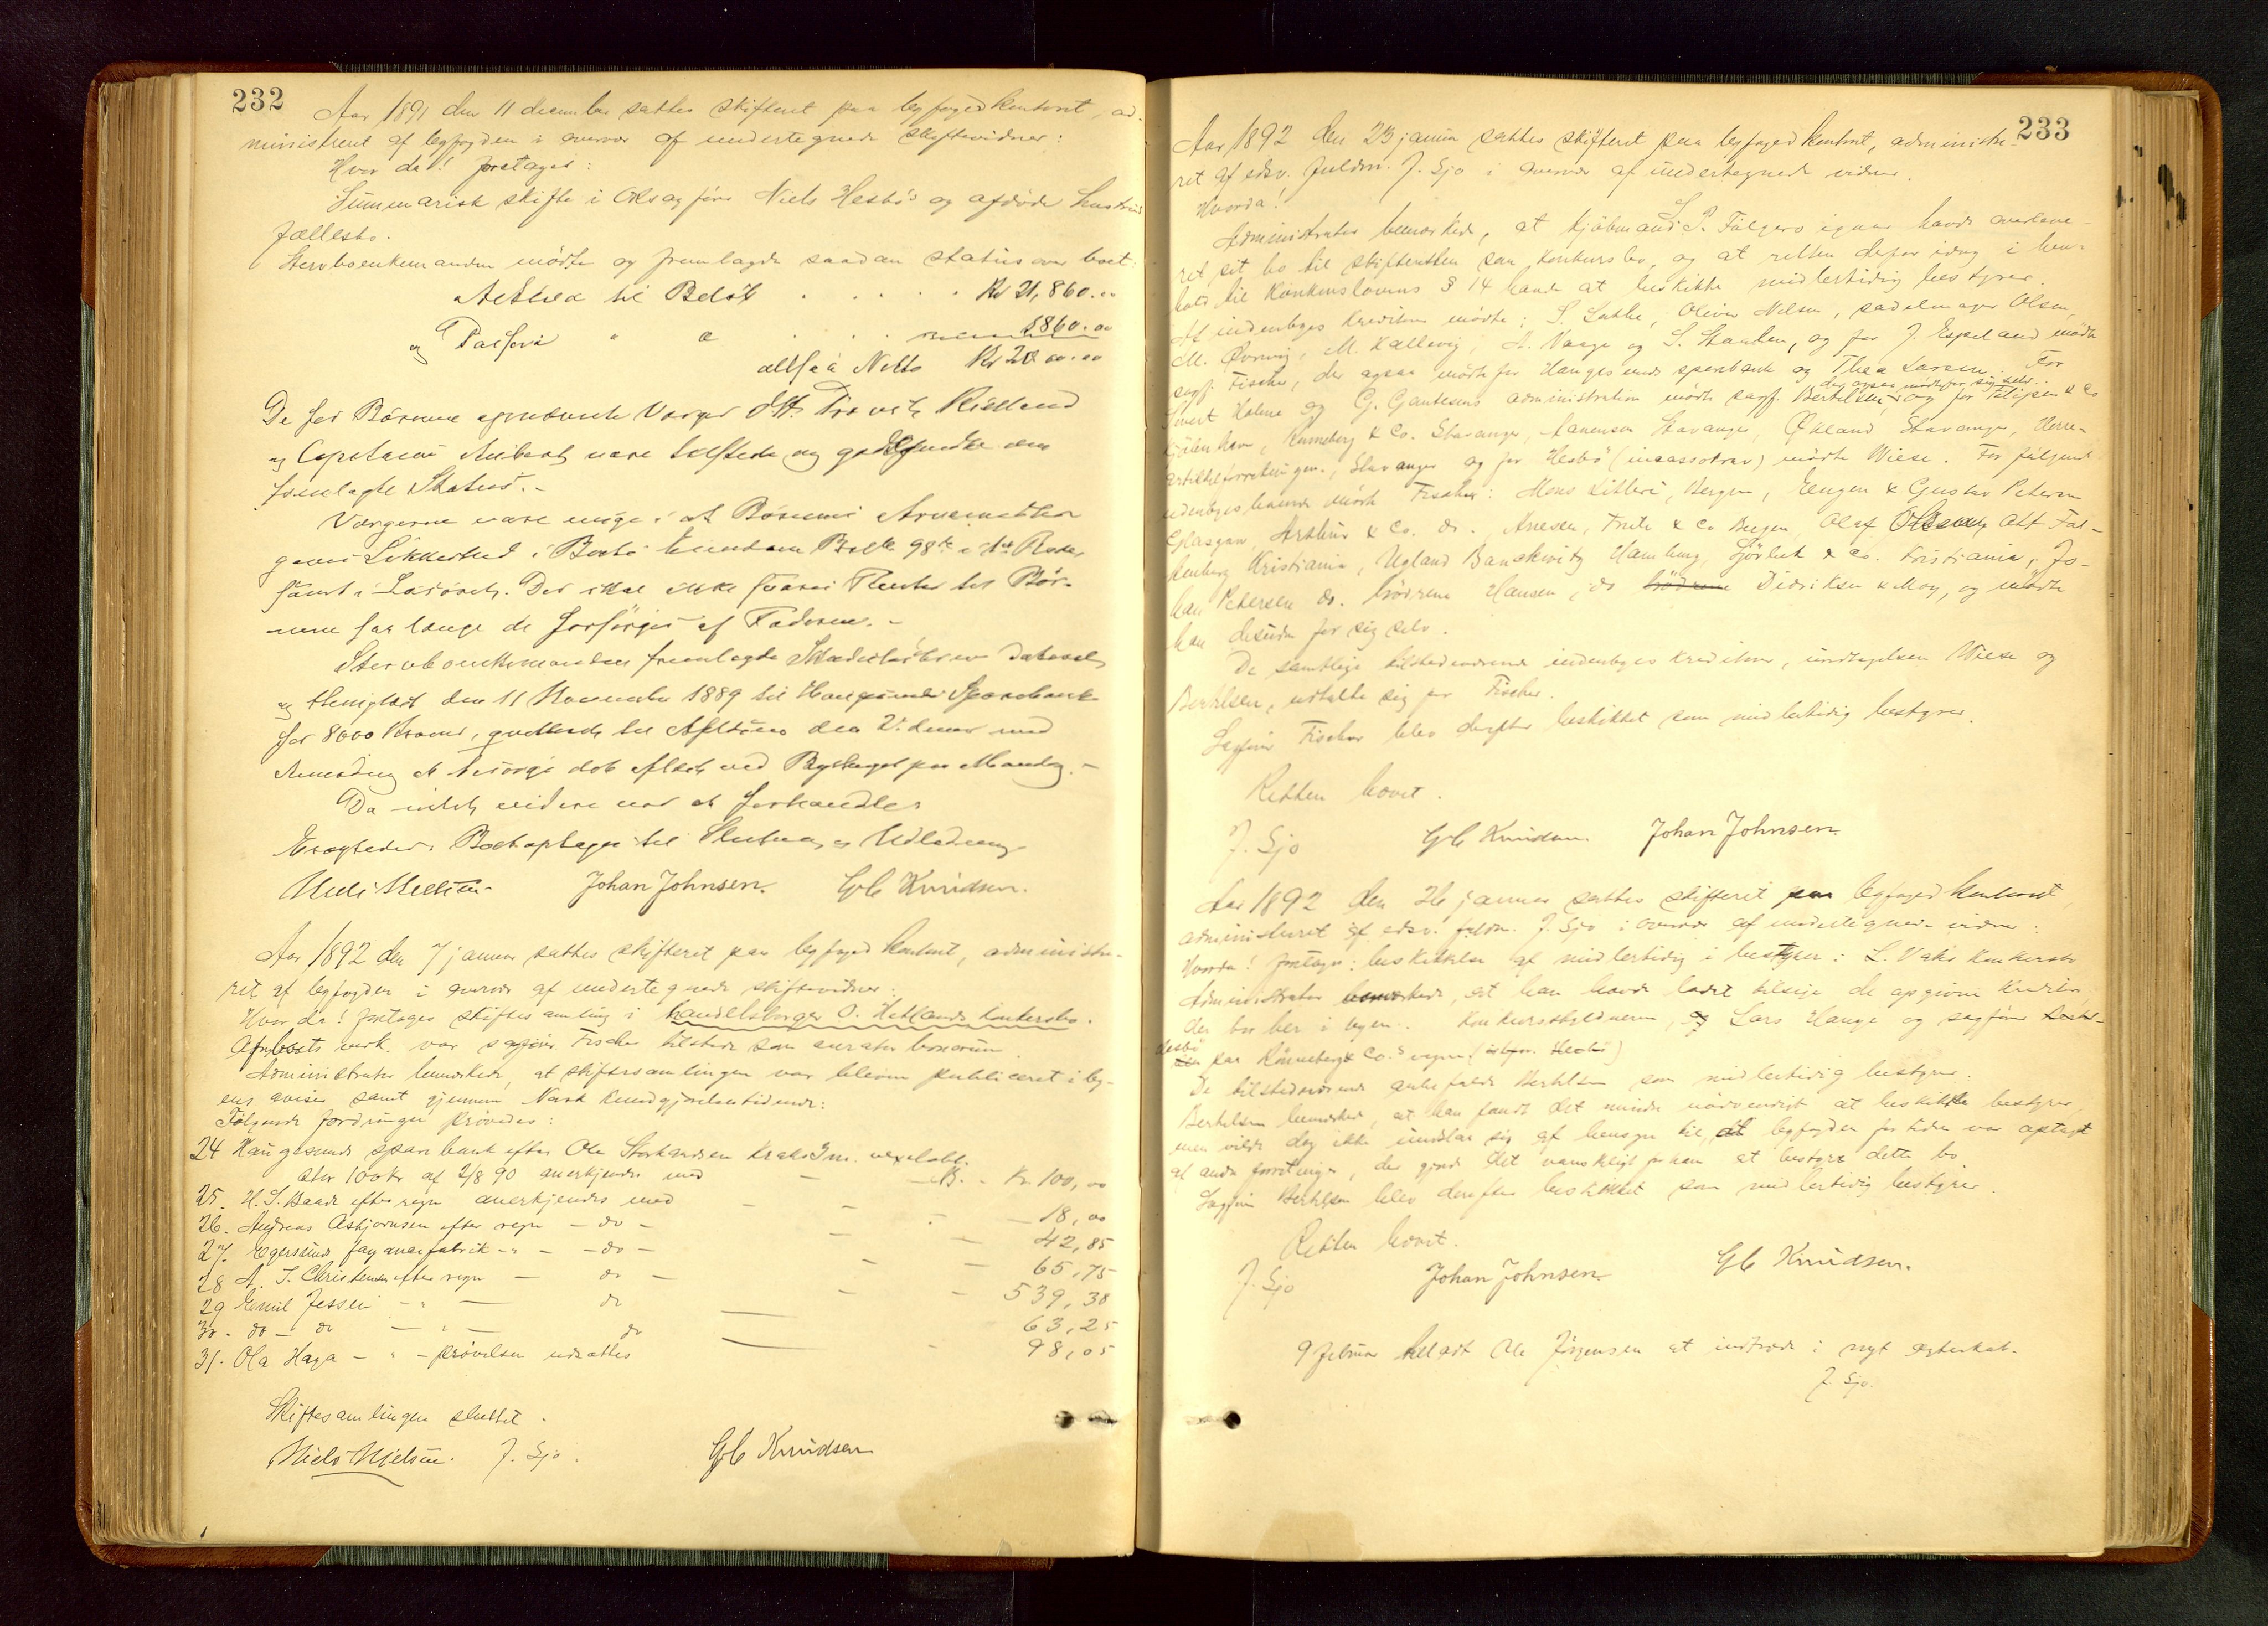 232
Aar 1891 den 11 december sattes skifteret paa byfogedkontoret, ad-
ministreret af byfogden i overvær af undertegnede skiftevidner:
Hvor da! foretages:
Summarisk skifte i O.r.sagfører Niels Hesbö's og afdøde hustrus
fællesbo.
Stervboenkemanden mödte og fremlagde saadan status over boet:
Activa til Belöb . . . . . Kr 21,860.00
og Passiva " " . . . 1860.00
altsaa Netto Kr 20 00.00
De for Börnene opnævnte Verger Kielland
og Capitain vare tilstede og godkjendte den
fremlagte Status.-
Vergerne vare enige i at Börnenes Arvemidler
gives Sikkerhed i Boets Eiendom 98 i 1st Rode,
samt i Lösöret. Der skal ikke svares Renter til Bör-
nene saa længe de forsörges af Faderen.-
Stervboenkemanden fremlagde Skadeslösbrev dateret
og thinglæst den 11 November 1889 til Haugesunds Sparebank
for 8000 Kroner, qvitteret til Aflösning den ds. med
Anmodning at besörge det aflæst ved Bythinget paa Mandag.-
Da intet videre var at forhandles
Eragtedes: Boet optages til Slutning og Udlodning.
Niels Nielsen. Johan Johnsen. G C Knudsen.
Aar 1892 den 7 januar sattes skifteret paa byfogedkontoret, administre-
ret af byfogden i overvær af undertegnede skiftevidner:
Hvor da! foretages skiftesamling i handelsborger O. Hetlands konkursbo.
Af var sagfører Fischer tilstede som curator bonorum.
Administrator bemærkede, at skiftesamlingen var bleven publiceret i by-
ens aviser samt gjennem Norsk kundgjørelsestidende:
Følgende fordringer prövedes:
24 Haugesunds sparebank efter Ole Storhaugen
stor 100 kr af 2/8 90 anerkjendes med - - Kr. 100,00
25. H. S. Baade efter regn anerkjendes med - - - 18,00
26. Andreas Asbjørnsen efter regn - do - - - 42,85
27. Egersunds fayancefabrik - " - - do - - - 65,75
28 A. I. Christensen efter regn - do - - - 539,38
29 Emil Jessen - " - do 63,25
30 - do - do - " - do - 98,05
31. Ola Haga - " - prövelsen udsattes
Skiftesamlingen sluttet.
Niels Nielsen. J. Sjo. G C Knudsen
233
Aar 1892 den 23 januar sattes skifteret paa byfogedkontoret, administre-
ret af edsv. fuldm. J. Sjo i overvær af undertegnede vidner.
Hvorda!
Administrator bemærkede, at kjöbmand S. P. Falgero igaar havde overleve-
ret sit bo til skifteretten som konkursbo, og at retten derfor idag i hen-
hold til Konkurslovens § 14 havde at beskikke midlertidig bestyrer.
Af indenbyes kreditorer mödte: S. Lothe, Oliver Nilsen, sadelmager Olsen,
M. Övrevig, M. Kallevig, A. Vaage og S. Staalen, og for J. Espeland mödte
sagf. Fischer, der ogsaa mödte for Haugesunds sparebank og Thea Larsen. For
Sivert Holme og G. Gautesens administration mödte sagf. Bertelsen, der ogsaa mödte for sig selv. og for & Co
Kjöbenhavn, Rönneberg & Co. Stavanger, Aanensen Stavanger, Økland Stavanger, Herre-
artikkelforretningen, Stavanger og for Hesbö (incassator) mödte Wiese. For fölgende
udenbyes boende mödte Fischer: Mons Litleré, Bergen, Eugen & Gustav Petersen
Glasgow, Arthur & Co. do. Arnesen, & Co Bergen, Olaf Olsen, Alf Fal-
kenberg Kristiania, Ugland Banekovitz Hamburg, Hjörlut & Co. Kristiania, Jo-
han Petersen do. brödrene Hansen, do Didriksen & Moy, og mödte
han desuden for sig selv.
De samtlige tilstedeværende indenbyes kreditorer, undtagelsen Wiese og
Bertelsen, udtalte sig for Fischer.
Sagfører Fischer blev derefter beskikket som midlertidig bestyrer.
Retten hævet.
J. Sjo G C Knudsen. Johan Johnsen.
Aar 1892 den 26 januar sattes skifteret paa byfogedkontoret,
administreret af edsv. fuldm. J. Sjo i overvær af undertegnede vidner:
Hvorda! foretages: beskikkelse af midlertidig bestyrer i L. Vaks konkursbo
Administrator bemærkede, at han havde ladet tilsige de opgivne kreditorer,
der bor her i byen. Konkursskyldneren, Lars Hauge og sagfører
Hesbö paa Rönneberg & Co.s vegne
De tilstedeværende anbefalede Bertelsen som midlertidig bestyrer.
Bertelsen bemærkede, at han fandt det mindre nödvendigt at beskikke bestyrer,
men vilde dog ikke undslaa sig af hensyn til, at byfogden for tiden var optaget
af andre forretninger, der gjorde det vanskeligt for ham at bestyre dette bo
Sagfører Bertelsen blev derefter beskikket som midlertidig bestyrer.
Retten hævet.
J. Sjo Johan Johnsen. G C Knudsen.
9 februar tilladt Ole Jörgensen at indtræde i nyt egteskab.
J. Sjo.